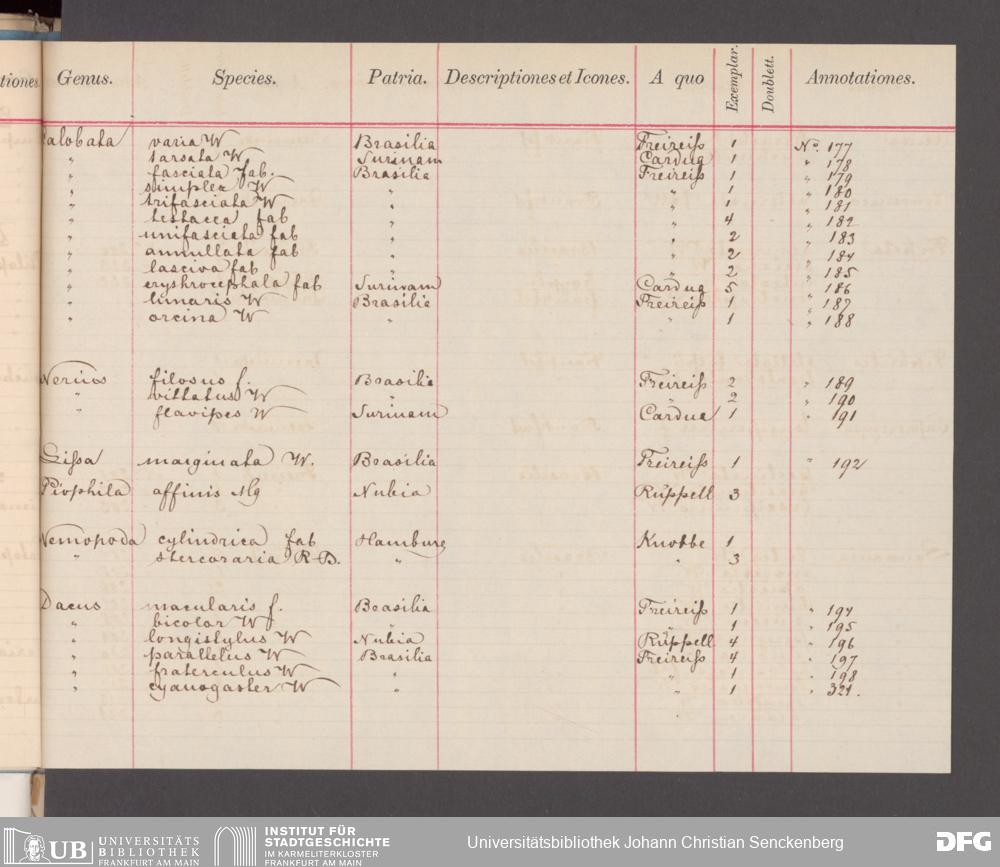 tiones. Genus. Species. Patria. Descriptiones et Icones. A quo Exemplar. Doublett. Annotationes.
Calobata varia W Brasilia Freireiß 1 No. 177
" tarsata W Surinam Cardua 1 " 178
" fasciata Fab. Brasilia Freireiß 1 " 179
" simplex W " " 1 " 180
" trifasciata W " " 1 " 181
" testacea fab " " 4 " 182
" unifasciata fab " " 2 " 183
" annullata fab " " 2 " 184
" lasciva fab " " 2 " 185
" erythrocephala fab Surinam Cardua 5 " 186
" lunaris W Brasilia Freireiß 1 " 187
" orcina W " " 1 " 188
Nerius filosus f. Brasilia Freireiß 2 " 189
" vittatus W " " 2 " 190
" flavipes W Surinam Cardua 1 " 191
Lissa marginata W. Brasilia Freireiß 1 " 192
Piophila affinis Mg Nubia Rüppell 3
Nemopoda cylindrica fab Hamburg Knobbe 1
" stercoraria R-D. " " 3
Dacus macularis f. Brasilia Freireiß 1 " 194
" bicolor W " " 1 " 195
" longistylus W Nubia Rüppell 4 " 196
" parallelus W Brasilia Freireiß 4 " 197
" fraterculus W " " 1 " 198
" cyanogaster W " " 1 " 321.
UB UNIVERSITÄTS
BIBLIOTHEK
FRANKFURT AM MAIN
INSTITUT FÜR
STADTGESCHICHTE
IM KARMELITERKLOSTER
FRANKFURT AM MAIN
Universitätsbibliothek Johann Christian Senckenberg
DFG